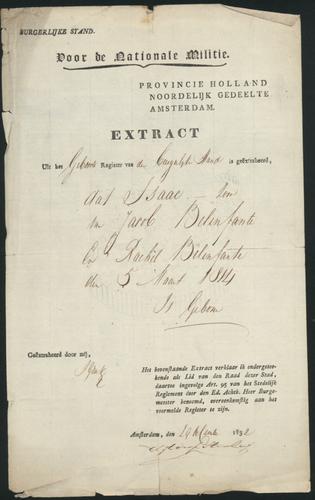 BURGERLIJKE STAND.
Voor de Nationale Militie.
PROVINCIE HOLLAND
NOORDELIJK GEDEELTE
AMSTERDAM.
EXTRACT
Uit het Geboorte Register van de Burgerlijke Stand is geëxtraheerd,
dat Isaac zoon
van Jacob Belinfante
En Rachel Belinfante
den 5 Maart 1814
Is Geboren
Geëxtraheerd door mij,
Het bovenstaande Extract verklaar ik ondergeteekende
als Lid van den Raad dezer Stad,
daartoe ingevolge Art. 95 van het Stedelijk
Reglement door den Ed. Achtb. Heer Burgemeester
benoemd, overeenkomstig aan het
voormelde Register te zijn.
Amsterdam, den 29 1832